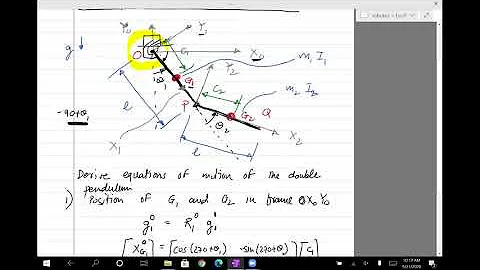 g ↓
Y0
Y1
X0
O
C1
m1 I1
θ1
G1
Y2
C2
m2 I2
-90+θ1
l
P
G2
Q
θ2
X2
X1
l
Derive equations of motion of the double
pendulum
1) Position of G1 and G2 in frame OX0Y0
g1^0 = R1^0 g1^1
[XG1^0] = [cos(270+θ1) -sin(270+θ1)] [C1]
10:19 AM